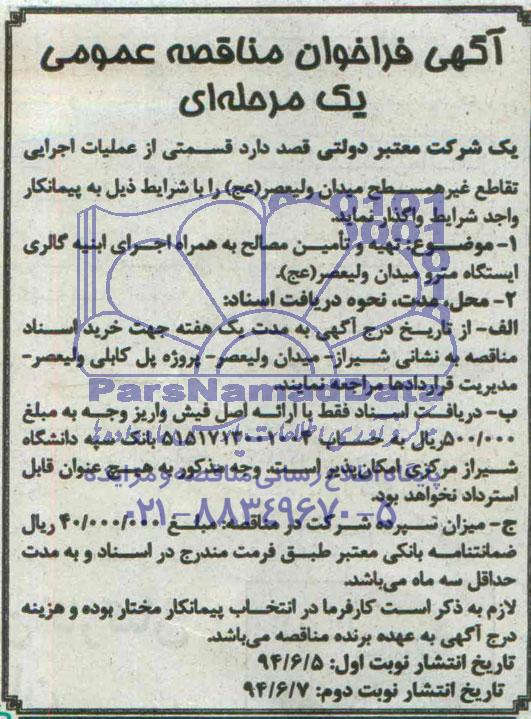 آگهی فراخوان مناقصه عمومی
یک مرحله‌ای
یک شرکت معتبر دولتی قصد دارد قسمتی از عملیات اجرایی
تقاطع غیرهمسطح میدان ولیعصر(عج) را با شرایط ذیل به پیمانکار
واجد شرایط واگذار نماید.
۱- موضوع: تهیه و تأمین مصالح به همراه اجرای ابنیه گالری
ایستگاه مترو میدان ولیعصر(عج).
۲- محل، مدت، نحوه دریافت اسناد:
الف- از تاریخ درج آگهی به مدت یک هفته جهت خرید اسناد
مناقصه به نشانی شیراز- میدان ولیعصر- پروژه پل کابلی ولیعصر-
مدیریت قراردادها مراجعه نمایند.
ParsNamadData
ب- دریافت اسناد فقط با ارائه اصل فیش واریز وجه به مبلغ
۵۰۰/۰۰۰ ریال به حساب بانک سپه دانشگاه
شیراز مرکزی امکان‌پذیر است. وجه مذکور به هیچ عنوان قابل
استرداد نخواهد بود.
پایگاه اطلاع رسانی مناقصه و مزایده
۰۲۱-۸۸۳۴۹۶۷۰-۵
ج- میزان سپرده شرکت در مناقصه: مبلغ ۴۰/۰۰۰/۰۰۰ ریال
ضمانتنامه بانکی معتبر طبق فرمت مندرج در اسناد و به مدت
حداقل سه ماه می‌باشد.
لازم به ذکر است کارفرما در انتخاب پیمانکار مختار بوده و هزینه
درج آگهی به عهده برنده مناقصه می‌باشد.
تاریخ انتشار نوبت اول: ۹۴/۶/۵
تاریخ انتشار نوبت دوم: ۹۴/۶/۷